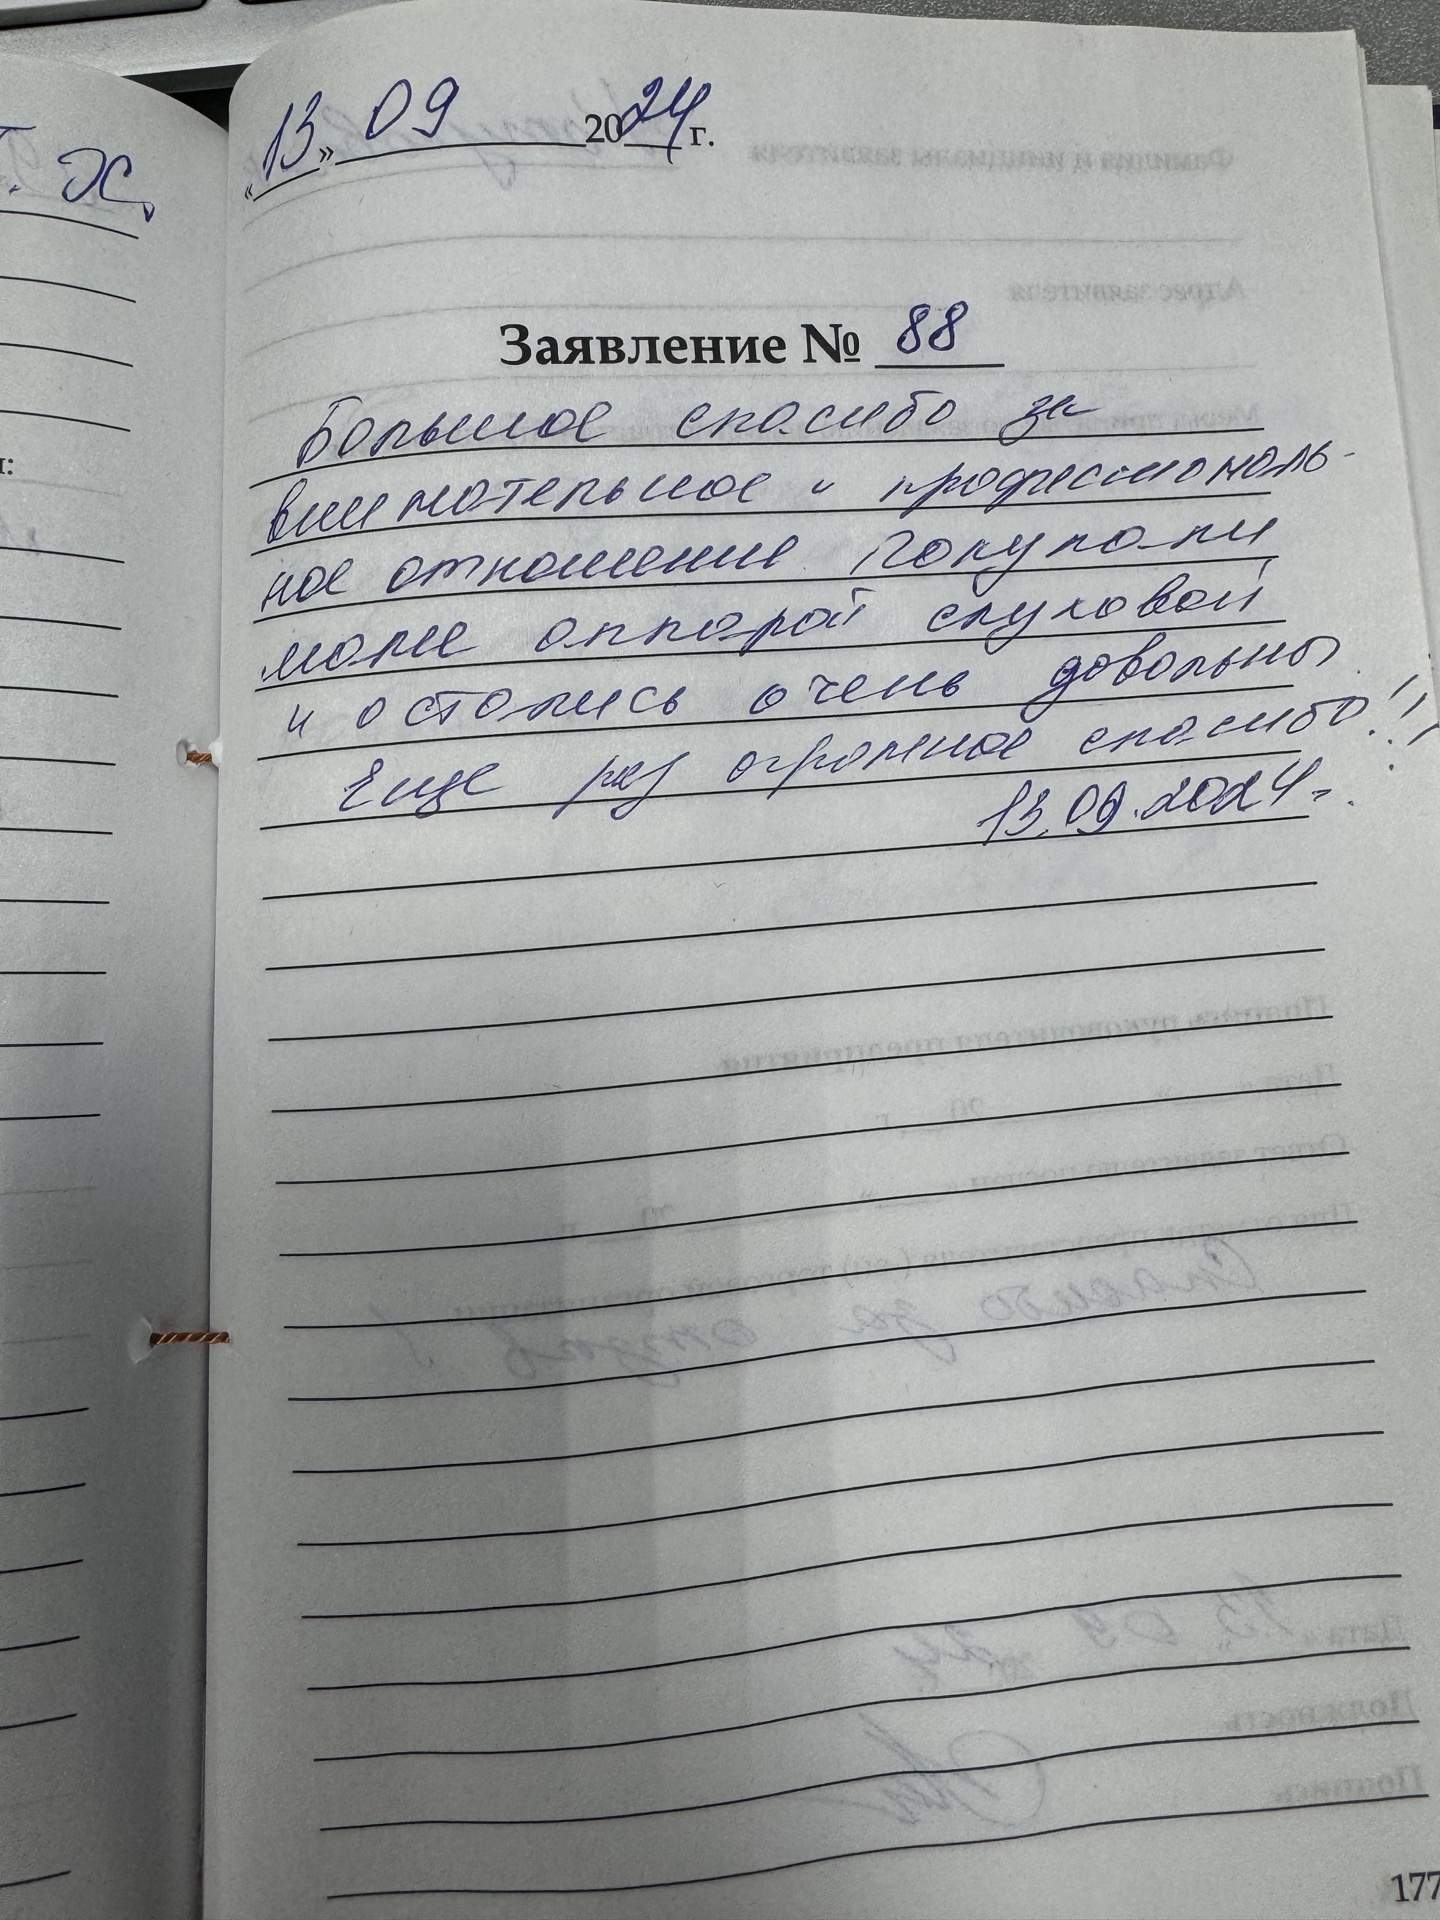 «13» 09 2024 г.
Заявление № 88
Большое спасибо за
внимательное и профессиональ-
ное отношение. Покупали
маме аппарат слуховой
и остались очень довольны
Еще раз огромное спасибо!!!
13.09.2024г.
177